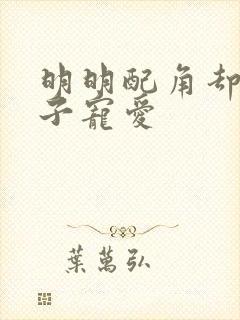 明明配角却
子寵愛
葉萬弘